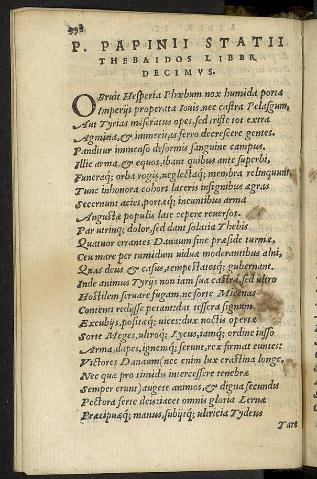 P. PAPINII STATII
THEBAIDOS LIBER
DECIMVS.
OBruit Hesperia Phœbum nox humida porta
Imperijs properata Iouis. nec castra Pelasgum,
Aut Tyrias miseratus opes, sed triste tot extra
Agmina, & immeritas ferro decrescere gentes.
Panditur immenso deformis sanguine campus.
Illic arma & equos, ibant quibus ante superbi,
Funeraq; orba rogis, neglectaq; membra relinquunt.
Tunc inhonora cohors laceris insignibus agras
Secernunt acies, portæq; incuntibus arma
Angustæ populis late cepere reuersos.
Par utrinq; dolor, sed dant solatia Thebis
Quatuor errantes Danaum sine præside turmæ,
Ceu mare per tumidum viduæ moderantibus alni,
Quas deus & casus, tempestatesq; gubernant.
Inde animus Tyrijs non iam sua castra, sed ultro
Hostilem seruare fugam, ne forte Micenas
Contenti redijsse petant: dat tessera signum
Excubijs, positæq; uices: dux noctis opertæ
Sorte Meges, ultroq; Lycus, iamq; ordine iusso
Arma, dapes, ignemq; ferunt, rex firmat euntes:
Victores Danaum (nec enim lux crastina longe,
Nec quæ pro timidis intercessere tenebræ
Semper erunt) augete animos, & digna secundis
Pectora ferte deis: iacet omnis gloria Lernæ
Præcipuæq; manus, subijt; ultricia Tydeus
Tart